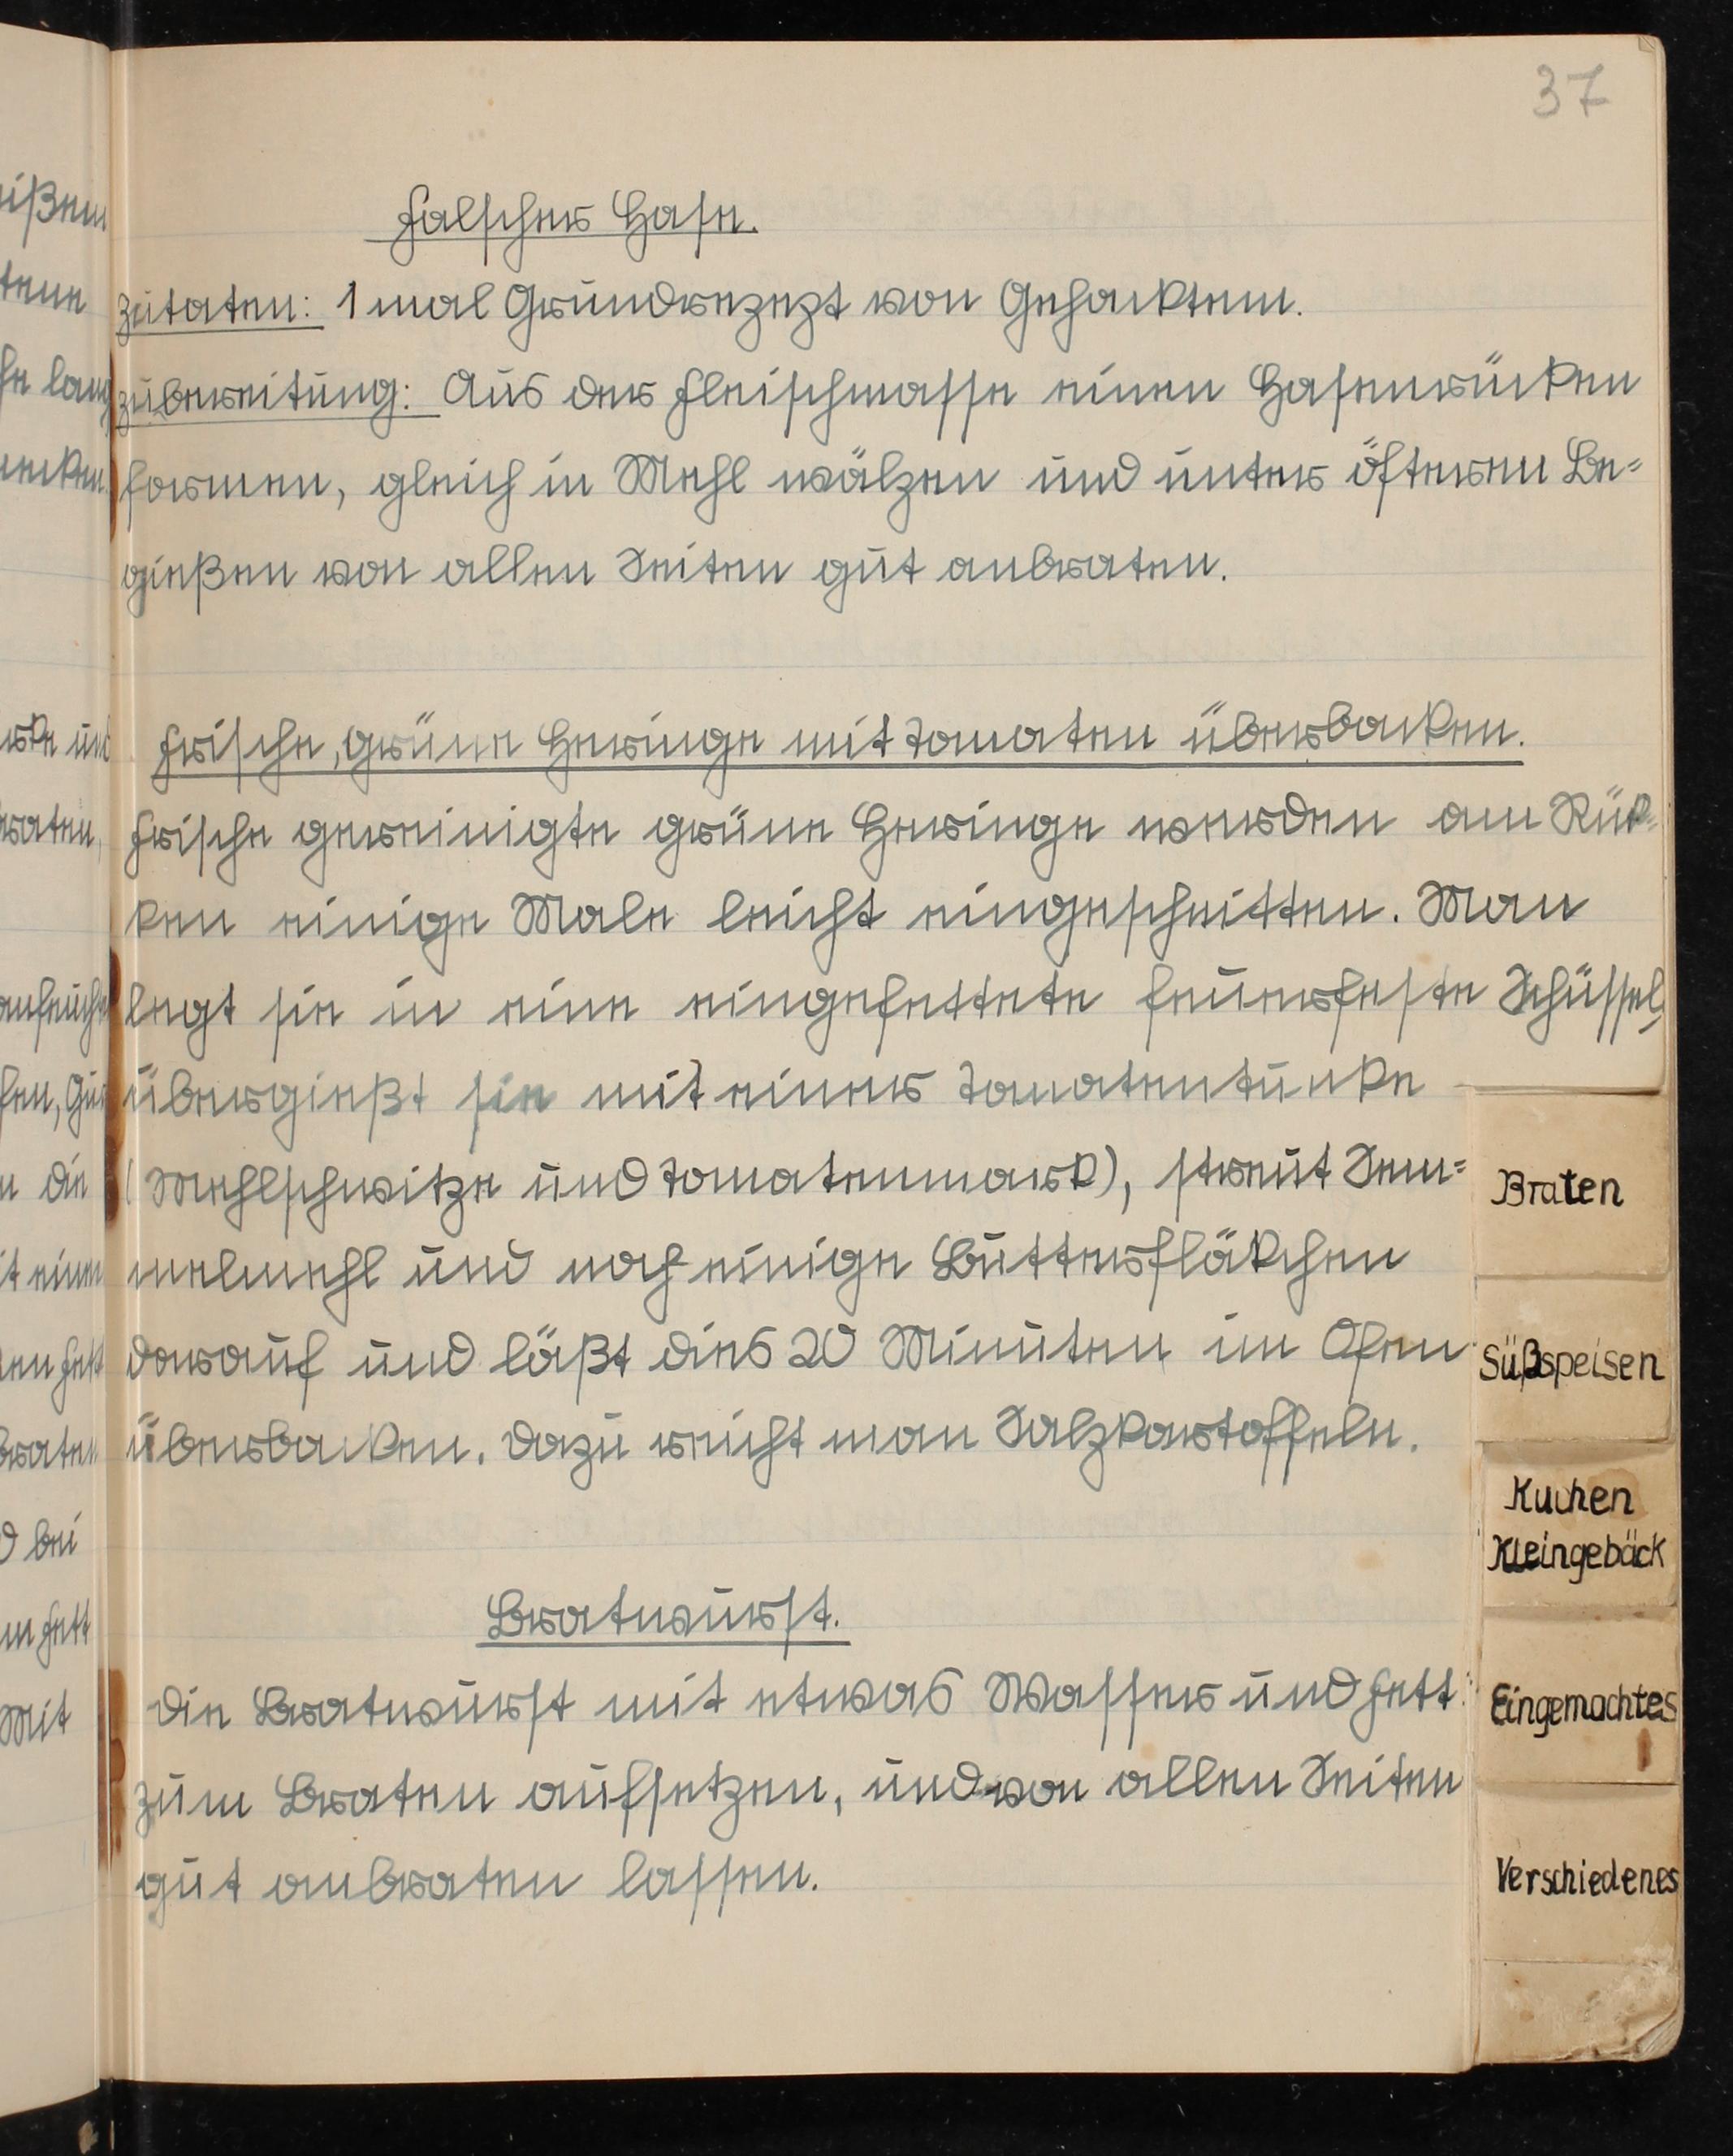 37
Falscher Hase.
Zutaten: 1 mal Grundrezept von Gehacktem.
Zubereitung: Aus der Fleischmasse einen Hasenrücken
formen, gleich in Mehl wälzen und unter öfteren Be=
gießen von allen Seiten gut anbraten.
Frische, grüne Heringe mit Tomaten überbacken.
Frische gereinigte grüne Heringe werden am Rük=
ken einige Male leicht eingeschnitten. Man
legt sie in eine eingefettete feuerfeste Schüssel,
übergießt sie mit einer Tomatentunke
(Mehlschwitze und Tomatenmark), streut Sem=
melmehl und noch einige Butterfläkchen
darauf und läßt dies 20 Minuten im Ofen
überbacken. Dazu reicht man Salzkartoffeln.
Bratwurst.
Die Bratwurst mit etwas Wasser und Fett
zum Braten aufsetzen, und von allen Seiten
gut anbraten lassen.
Braten
Süßspeisen
Kuchen
Kleingebäck
Eingemachtes
Verschiedenes